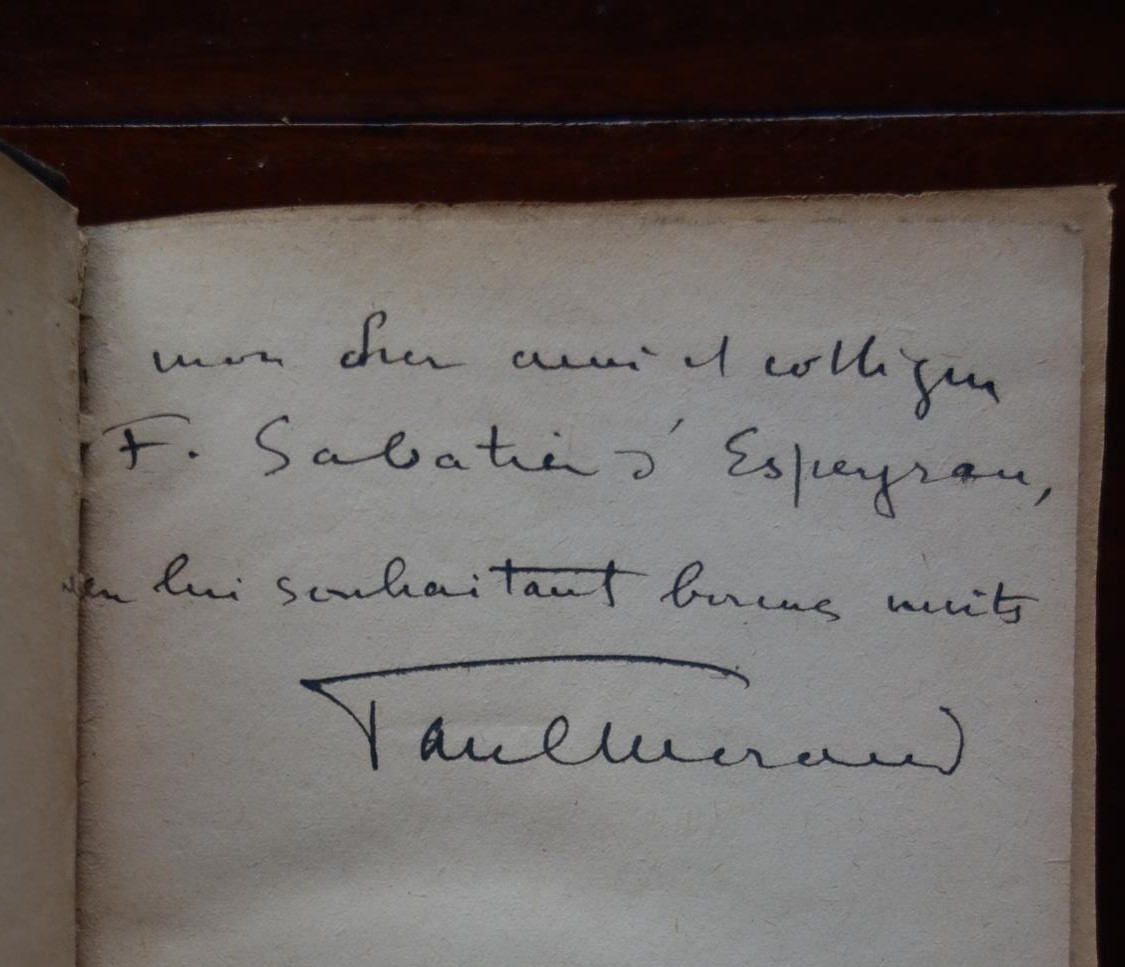 mon cher ami et collègue
F. Sabatier d'Espeyran,
en lui souhaitant bonnes nuits
Paul Morand